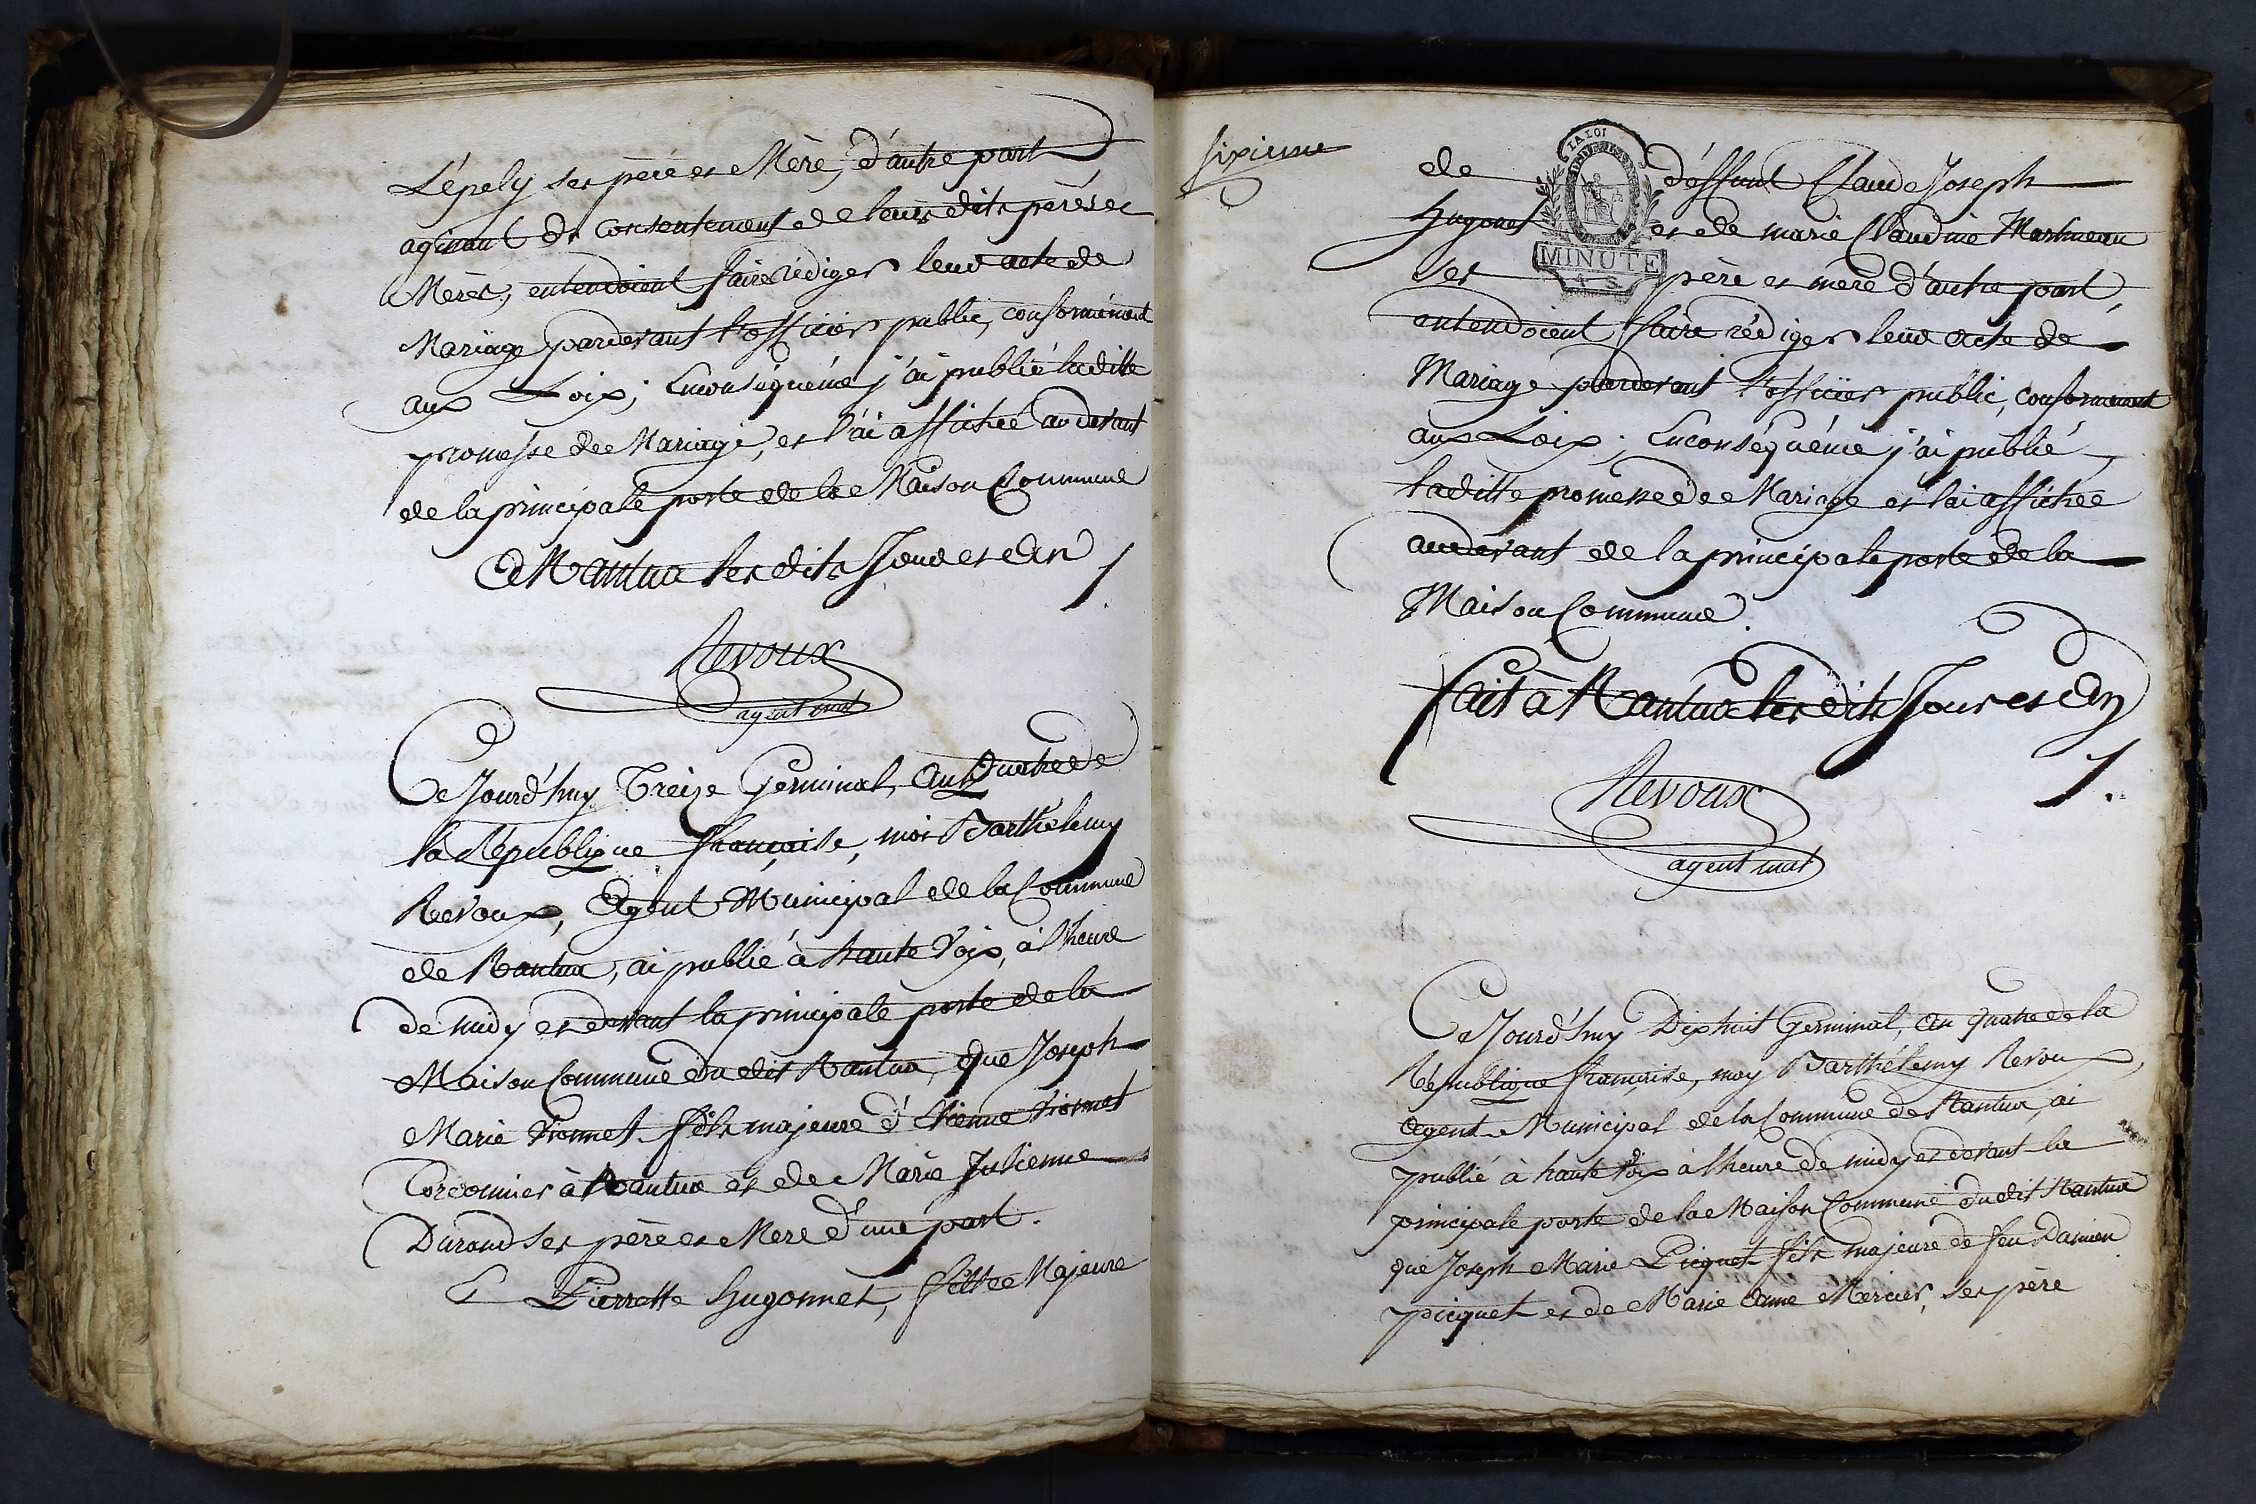 Lépely ses père et Mère, d'autre part
agissant du Consentement de leurs dits pères et
Mères, entendoient faire rédiger leur acte de
Mariage pardevant l'officier public, conformément
aux Loix; Enconséquence j'ai publié la ditte
promesse de Mariage, et l'ai affichée au devant
de la principale porte de la Maison Commune
à Nantua les dits Jour et an
Revoux
agent mal
Ce Jourd'huy Treize Germinal, an Quatre de
la République française, moi Barthélemy
Revoux, Agent Municipal de la Commune
de Nantua, ai publié à haute Voix, à l'heure
de midy et devant la principale porte de la
Maison Commune du dit Nantua, que Joseph
Marie Vionnet fils majeure d'Etienne Vionnet
Cordonnier à Nantua et de Marie Julienne
Durand ses père et Mere d'une part.
Et Pierrette Hugonnet, fille Majeure
sixieme
de deffunt Claude Joseph
LA LOI
Hugonet et de marie Claudine Martineau
MINUTE
ses père et mere d'autre part
4 S
entendoient faire rédiger leur acte de
Mariage pardevant l'officier public, conformement
aux Loix; Enconséquence j'ai publié
la ditte promesse de Mariage et l'ai affichée
audevant de la principale porte de la
Maison Commune.
fait à Nantua les dits Jour et an
Revoux
agent mal
Ce Jourd'huy Dixhuit Germinal, an quatre de la
République française, moy Barthélemy Revoux,
agent Municipal de la Commune de Nantua, ai
publié à haute Voix à l'heure de midy et devant la
principale porte de la Maison Commune du dit Nantua
que Joseph Marie Picquet fils majeure de feu Damien
picquet et de Marie Anne Mercier, ses père